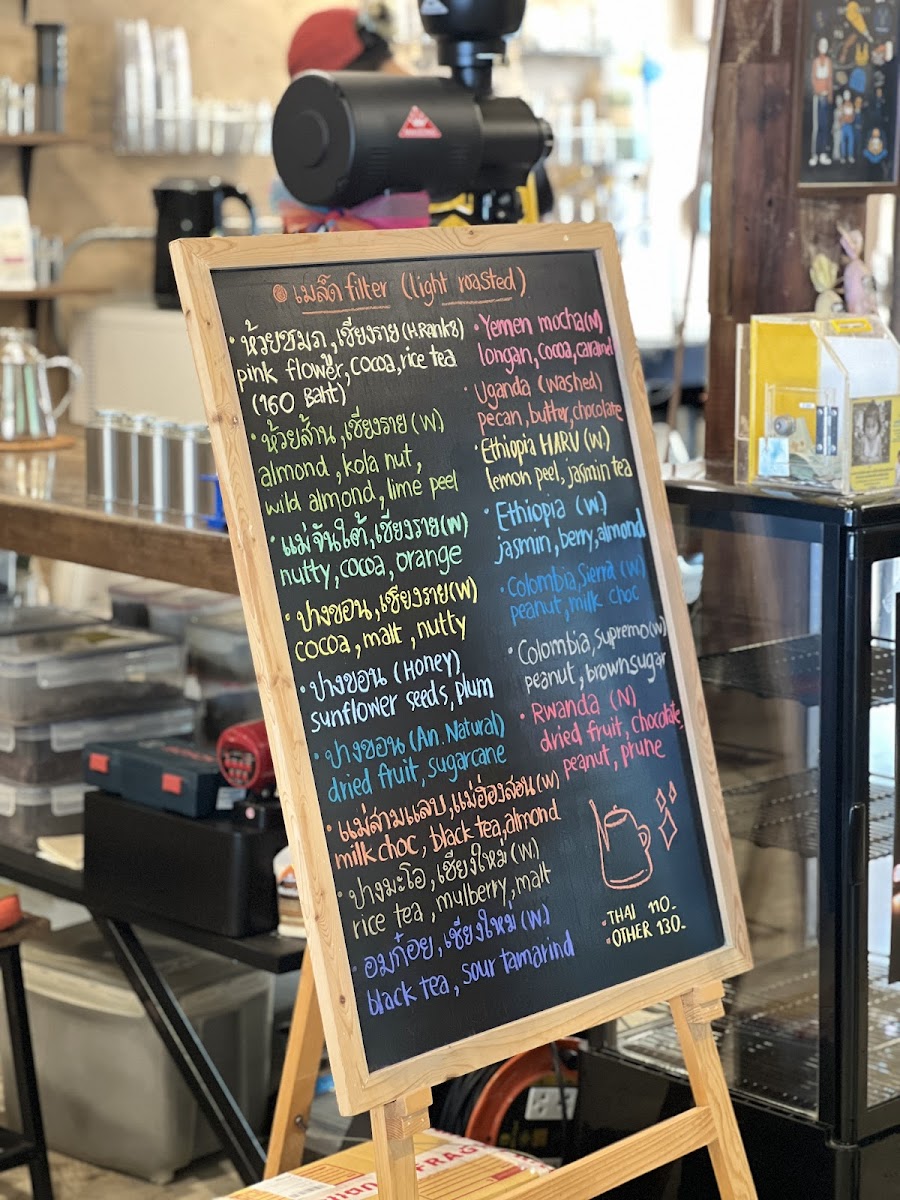 เมล็ด filter (light roasted)
• ห้วยชมภู, เชียงราย (H.Rank8)
pink flower, cocoa, rice tea
(160 Baht)
• ห้วยส้าน, เชียงราย (W)
almond, kola nut,
wild almond, lime peel
• แม่จันใต้, เชียงราย (W)
nutty, cocoa, orange
• ปางขอน, เชียงราย (W)
cocoa, malt, nutty
• ปางขอน (Honey)
sunflower seeds, plum
• ปางขอน (An. Natural)
dried fruit, sugarcane
• แม่สามแลบ, แม่ฮ่องสอน (W)
milk choc, black tea, almond
• ปางมะโอ, เชียงใหม่ (W)
rice tea, mulberry, malt
• อมก๋อย, เชียงใหม่ (W)
black tea, sour tamarind
• Yemen mocha (N)
longan, cocoa, caramel
• Uganda (washed)
pecan, butter, chocolate
• Ethiopia HARU (W)
lemon peel, jasmin tea
• Ethiopia (W)
jasmin, berry, almond
• Colombia, Sierra (W)
peanut, milk choc
• Colombia, supremo (W)
peanut, brown sugar
• Rwanda (N)
dried fruit, chocolate,
peanut, prune
• THAI 110.-
• OTHER 130.-